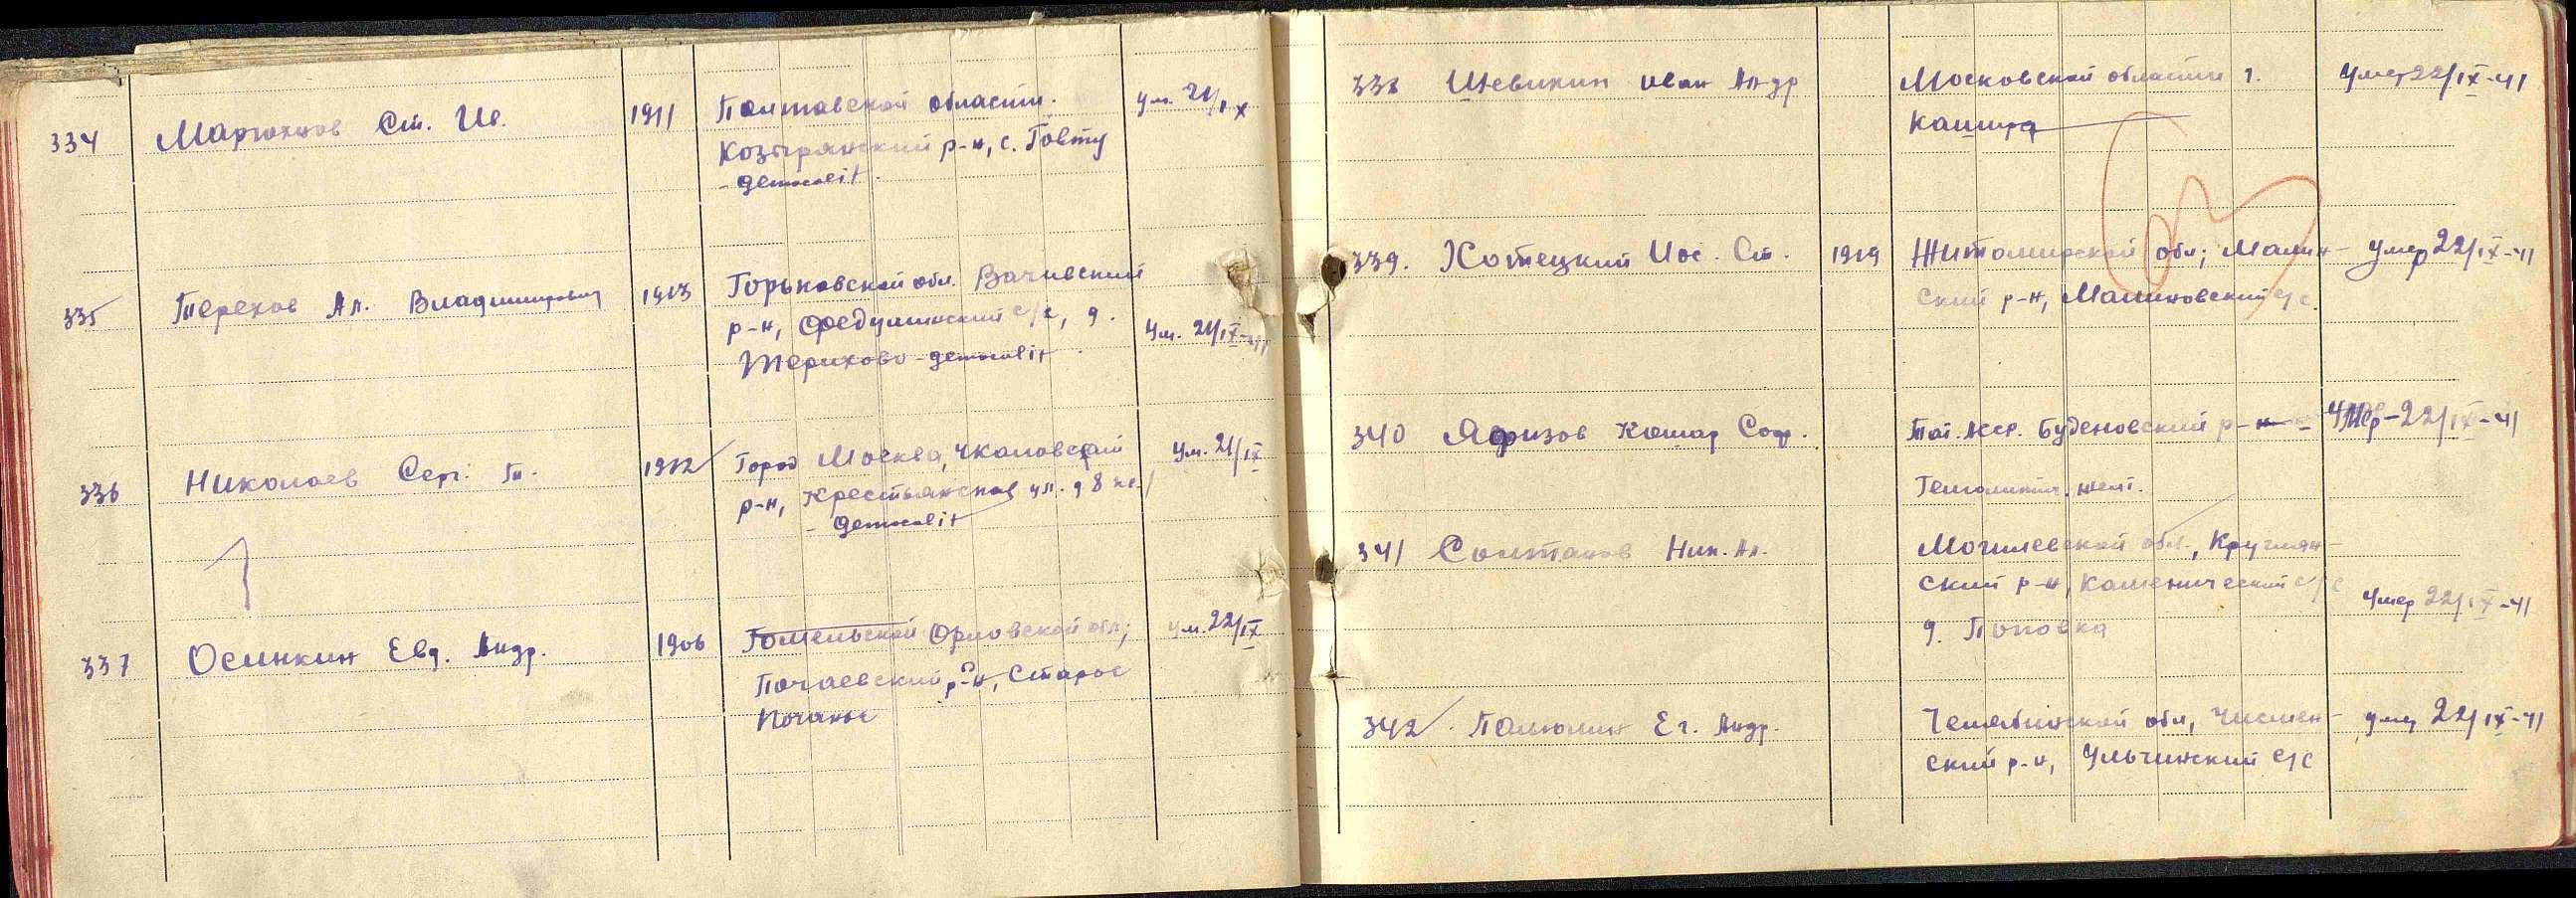 334 Мартохнов Ст. Ив. 1911 Полтавской области. Ум. 21/IX
Козырянский р-н, с. Говту
- demobilit.
335 Терехов Ал. Владимирович 1913 Горьковской обл. Вачивский
р-н, Федулинский с/с, д. Ум. 21/IX-41
Терихово - demobilit.
336 Николаев Серг. 1912 Город Москва, Чкаловский Ум. 21/IX
р-н, Крестьянская ул. д 8
- demobilit
337 Осинкин Евд. Андр. 1906 Гомельской Орловской обл; ум. 22/IX
Почаевский р-н, Старое
Почанье
338 Шевикин Иван Андр Московской области г. Умер 22/IX-41
Кашира
339. Хотецкий Иос. Ст. 1919 Житомирской обл; Малин- Умер 22/IX-41
ский р-н, Малиновский с/с.
340 Яфизов Комар Соф. Тат. АССР. Буденовский р-н Умер-22/IX-41
341 Солтанов Ник. Ал. Могилевской обл., Круглян-
ский р-н, Каменический с/с Умер 22/IX-41
д. Поповка
342 Палюлин Ег. Андр. Челябинской обл, Чисмен- умер 22/IX-41
ский р-н, Ульчинский с/с